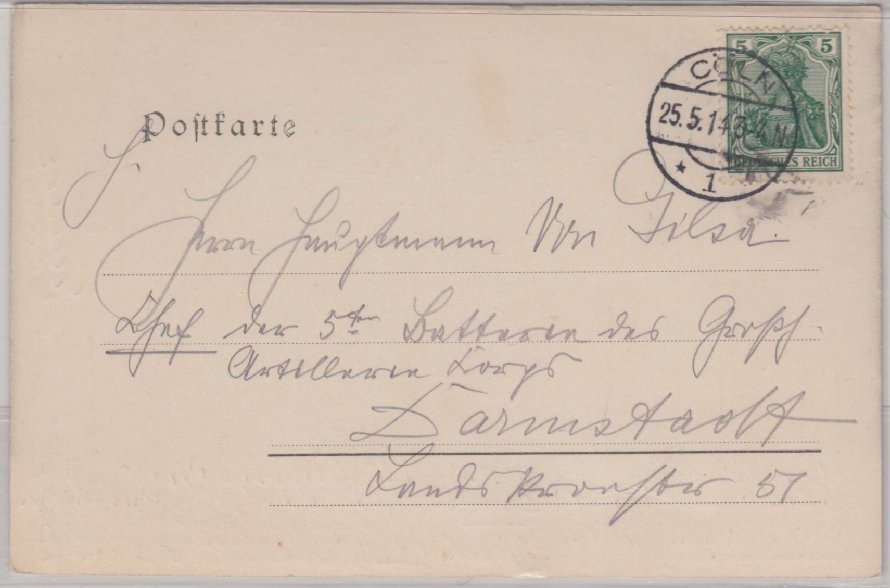 5 5
CÖLN
25.5.14.3-4 N
* 1
DEUTSCHES REICH
Postkarte
S.
Herrn Hauptmann von Gilsa
Chef der 5ten Batterie des Großh.
Artillerie Korps
Darmstadt
Landskronstr 51